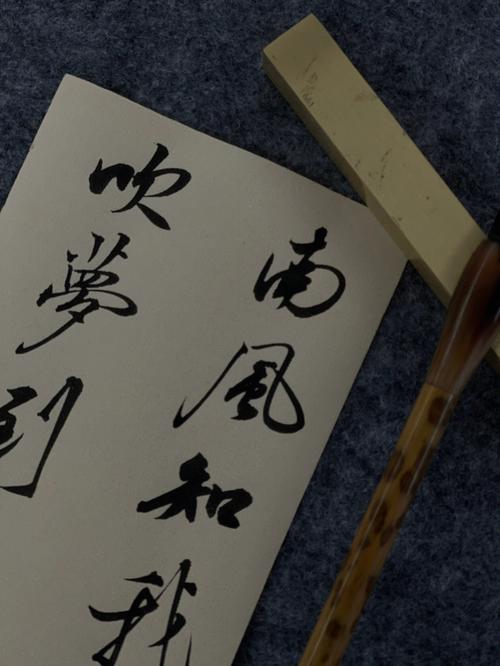 南風知我
吹夢到